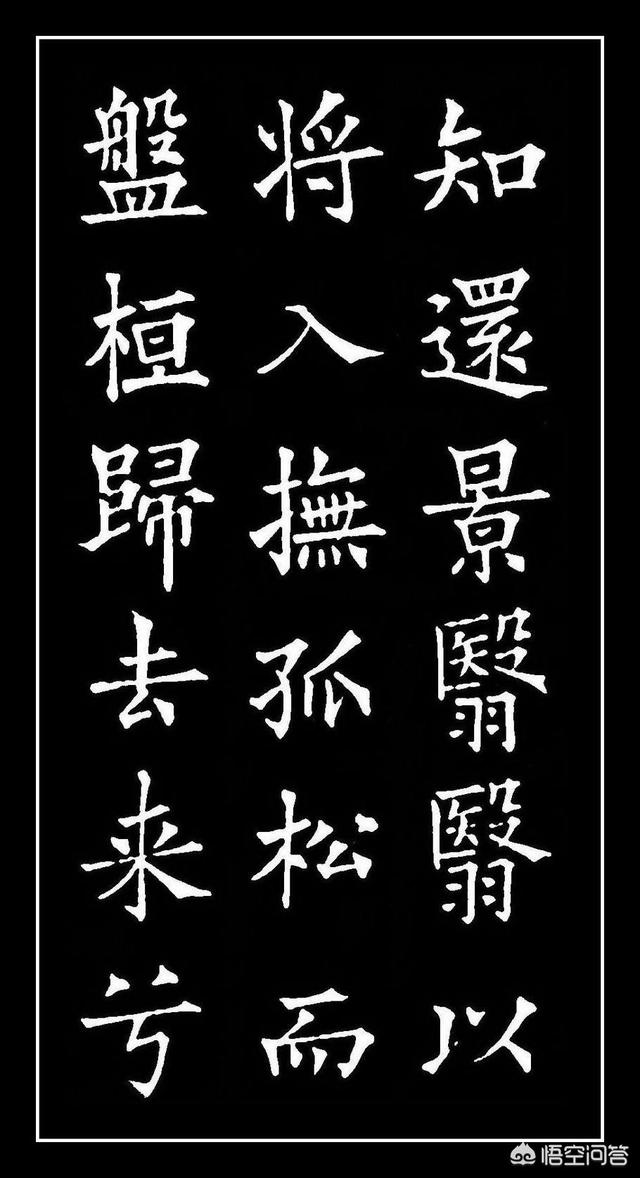 知還景翳翳以
将入撫孤松而
盤桓歸去来兮
悟空问答